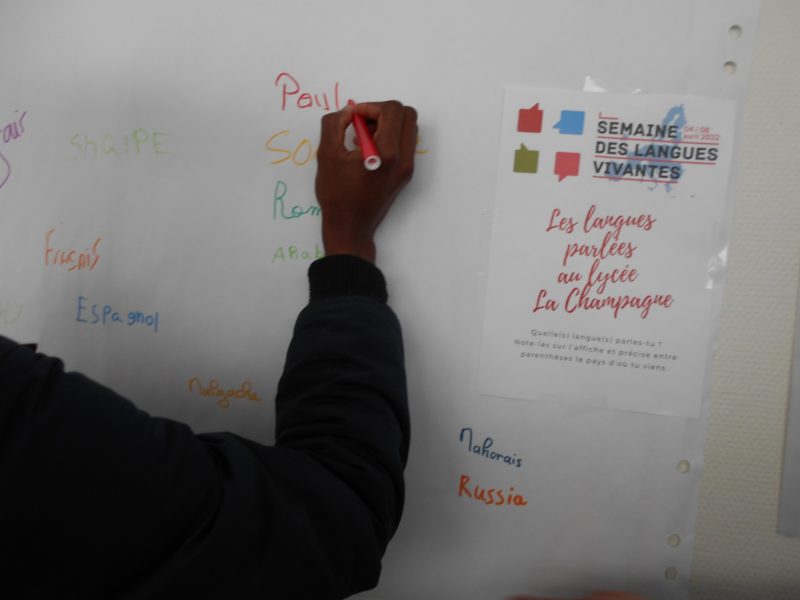 SHQIPE
Finsais
Espagnol
Malgache
Poul
So
Rom
ARab
Mahorais
Russia
SEMAINE
DES LANGUES
VIVANTES
04 / 08
avril 2022
Les langues
parlées
au lycée
La Champagne
Quelle(s) langue(s) parles-tu ?
Note-les sur l'affiche et précise entre
parenthèses le pays d'où tu viens.